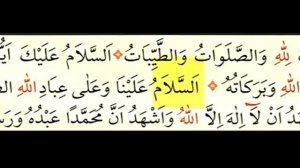 لِلّٰهِ وَالصَّلَوَاتُ وَالطَّيِّبَاتُ ❖ اَلسَّلَامُ عَلَيْكَ
اللّٰهِ وَبَرَكَاتُهُ ❖ اَلسَّلَامُ عَلَيْنَا وَعَلٰى عِبَادِ اللّٰهِ
اَنْ لَٓا اِلٰهَ اِلَّا اللّٰهُ وَاَشْهَدُ اَنَّ مُحَمَّدًا عَبْدُهُ